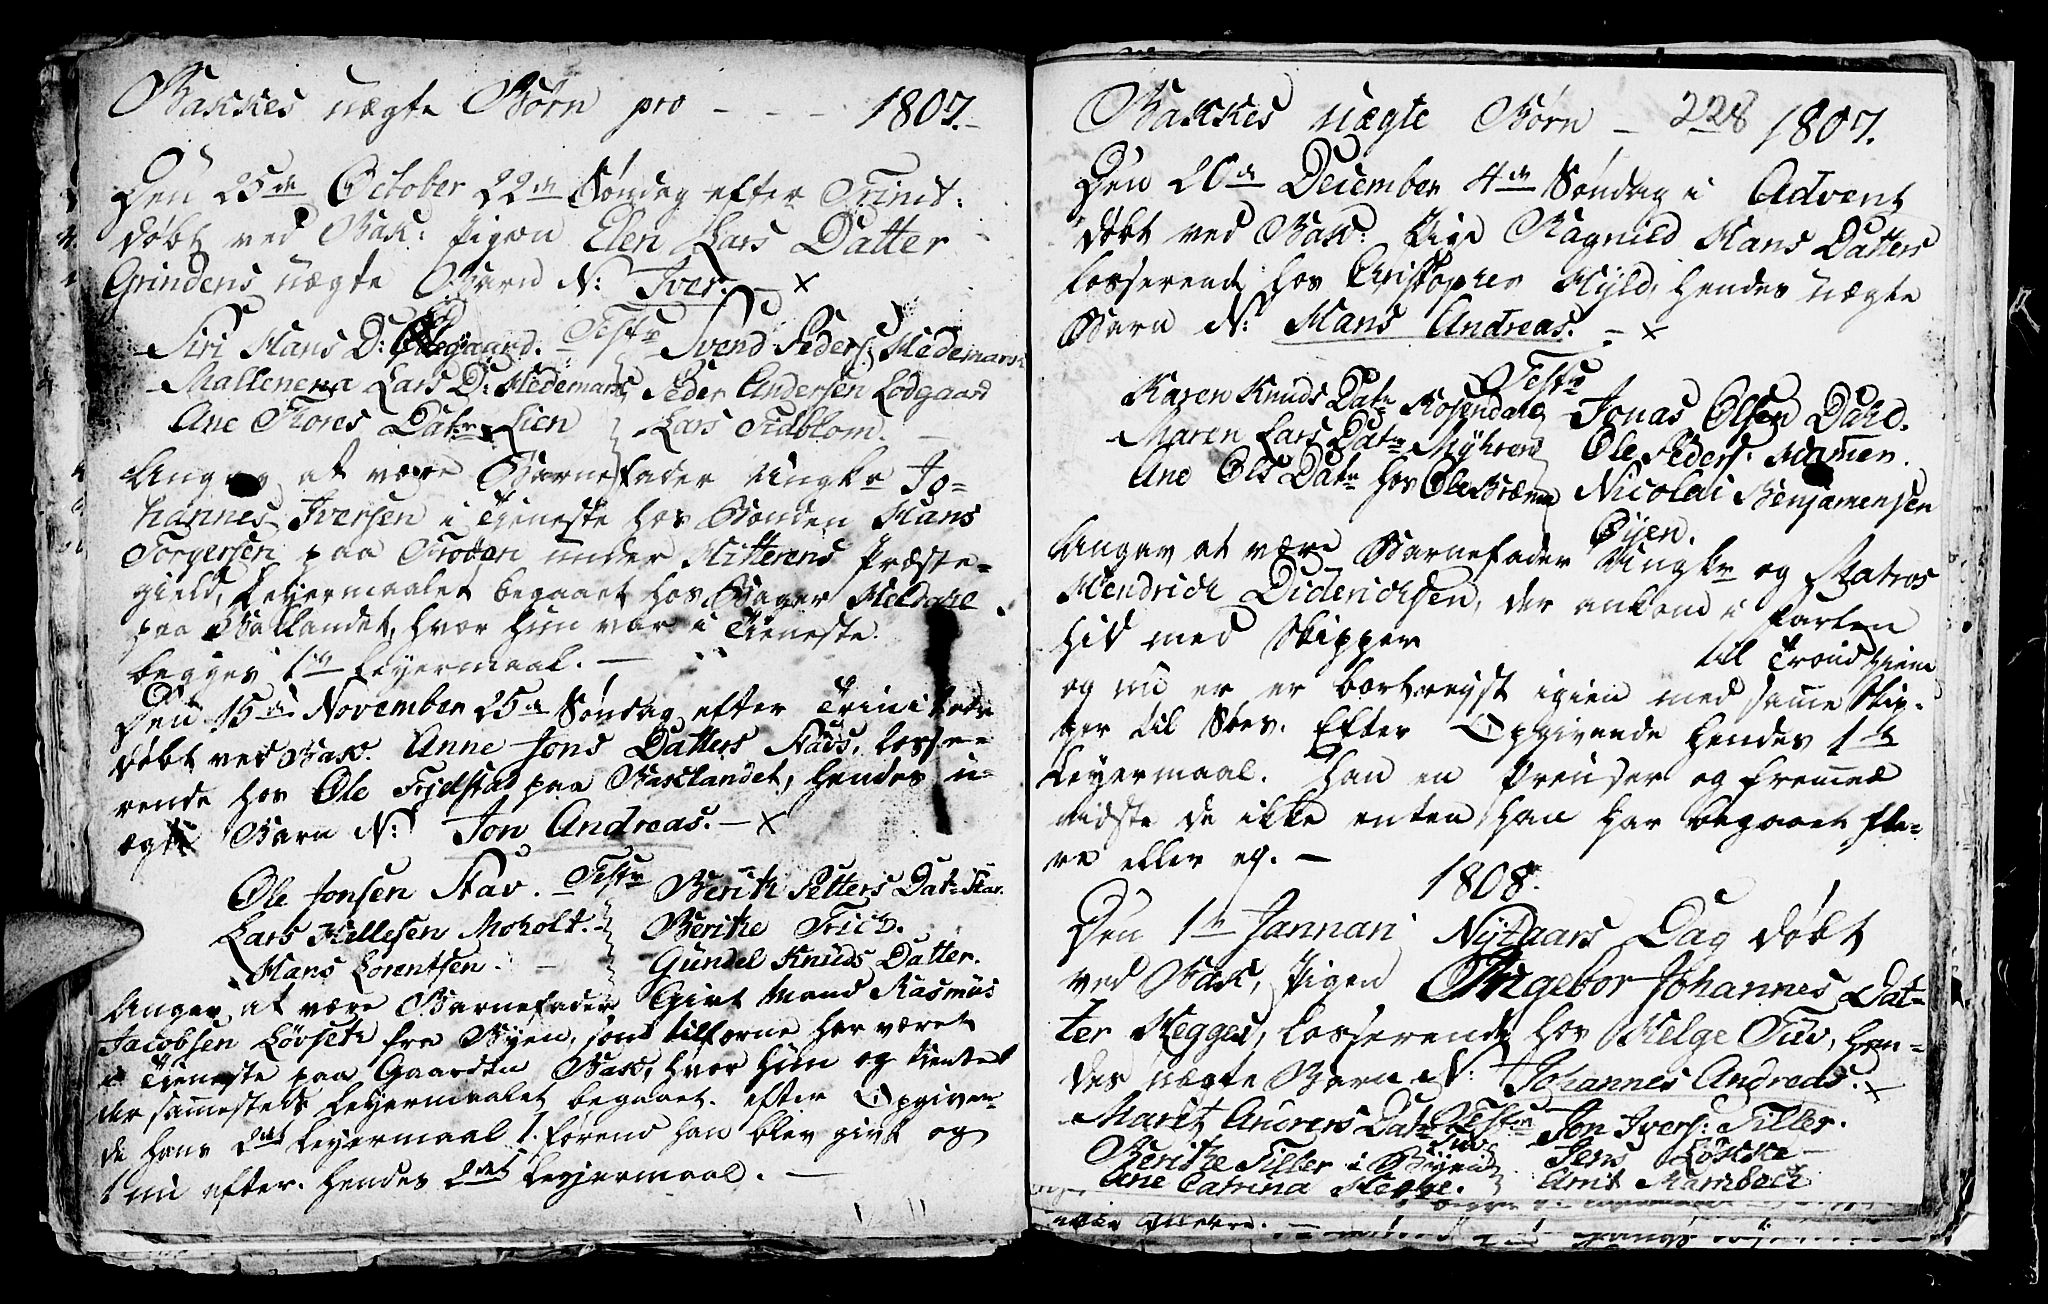 Bakkes uægte Børn pro - - - 1807.
Den 25de October 22de Søndag efter Trinit:
døbt ved Bak: Pigen Elen Lars Datter
Grindens uægte Barn N: Iver. - x
Siri Hans D: Ødegaard. Testr Svend Peders: Hedemark
Mallenena Lars D: Hedemark Peder Andersen Lodgaard
Ane Thores Datr Lien Lars Sidblom.
Angav at være Barnefader Ungkr Jo-
hannes Iversen i Tieneste hos Bonden Hans
Torgersen paa Frøden under Hitterens Præste-
gield, Leyermaalet begaaet hos Bager
paa Baklandet, hvor hun var i Tieneste.
begges 1ste Leyermaal. -
Den 15de November 25de Søndag efter Trinitatis
døbt ved Bak. Anne Jons Datters Stavs, losse-
rende hos Ole Fieldstad paa Baklandet, hendes u-
ægte Barn N: Jon Andreas. - x
Ole Jonsen Stav. Testr Berith Petters Datr Stav.
Lars Hillesen Moholt. Berithe Trich.
Hans Lorentsen. Gundel Knuds Datter.
Angav at være Barnefader Givt Mand Rasmus
Jacobsen Løvseth fra Byen, som tilforne har været
i Tieneste paa Gaarden Bak, hvor hun og tiente
der sammesteds Leyermaalet begaaet. efter Opgiven-
de hans 2det Leyermaal 1. førend han blev givt og
1 nu efter. hendes 2det Leyermaal. -
Bakkes uægte Børn - 228 1807.
Den 20de December 4de Søndag i Advent
døbt ved Bak: Pige Ragnild Hans Datters
losserende hos Christopher Hyld, hendes uægte
Barn N: Hans Andreas. - x
Testr
Karen Knuds Datr Rosendale Jonas Olsen Dahl.
Maren Lars Datr Myhren Ole Peders: Mamen.
Ane Ols Datr hos Ole Bræn Nicolai Benjamensen
Øyen.
Angav at være Barnefader Ungkr og Matros
Hendrich Diderichsen, der ankom i Farten
hid med Skipper til Trondhiem
og nu er er bortreyst igien med samme Skip-
per til Søes. Efter Opgivende hendes 1ste
Leyermaal. Han en Preuser og fremmed
vidste de ikke enten han har begaaet fle-
re eller ej. -
1808.
Den 1ste Januari Nytaars Dag døbt
ved Bak, Pigen Ingebor Johannes Dat-
ter Hegges, losserende hos Helge Tuv, hen-
des uægte Barn N: Johannes Andreas. x
Marit Anders Datr Tuv Testr Jon Ivers: Tiller.
Berithe Tiller i Byen Jens Løkke -
Ane Catrina Hegge. Arnt Marsbach